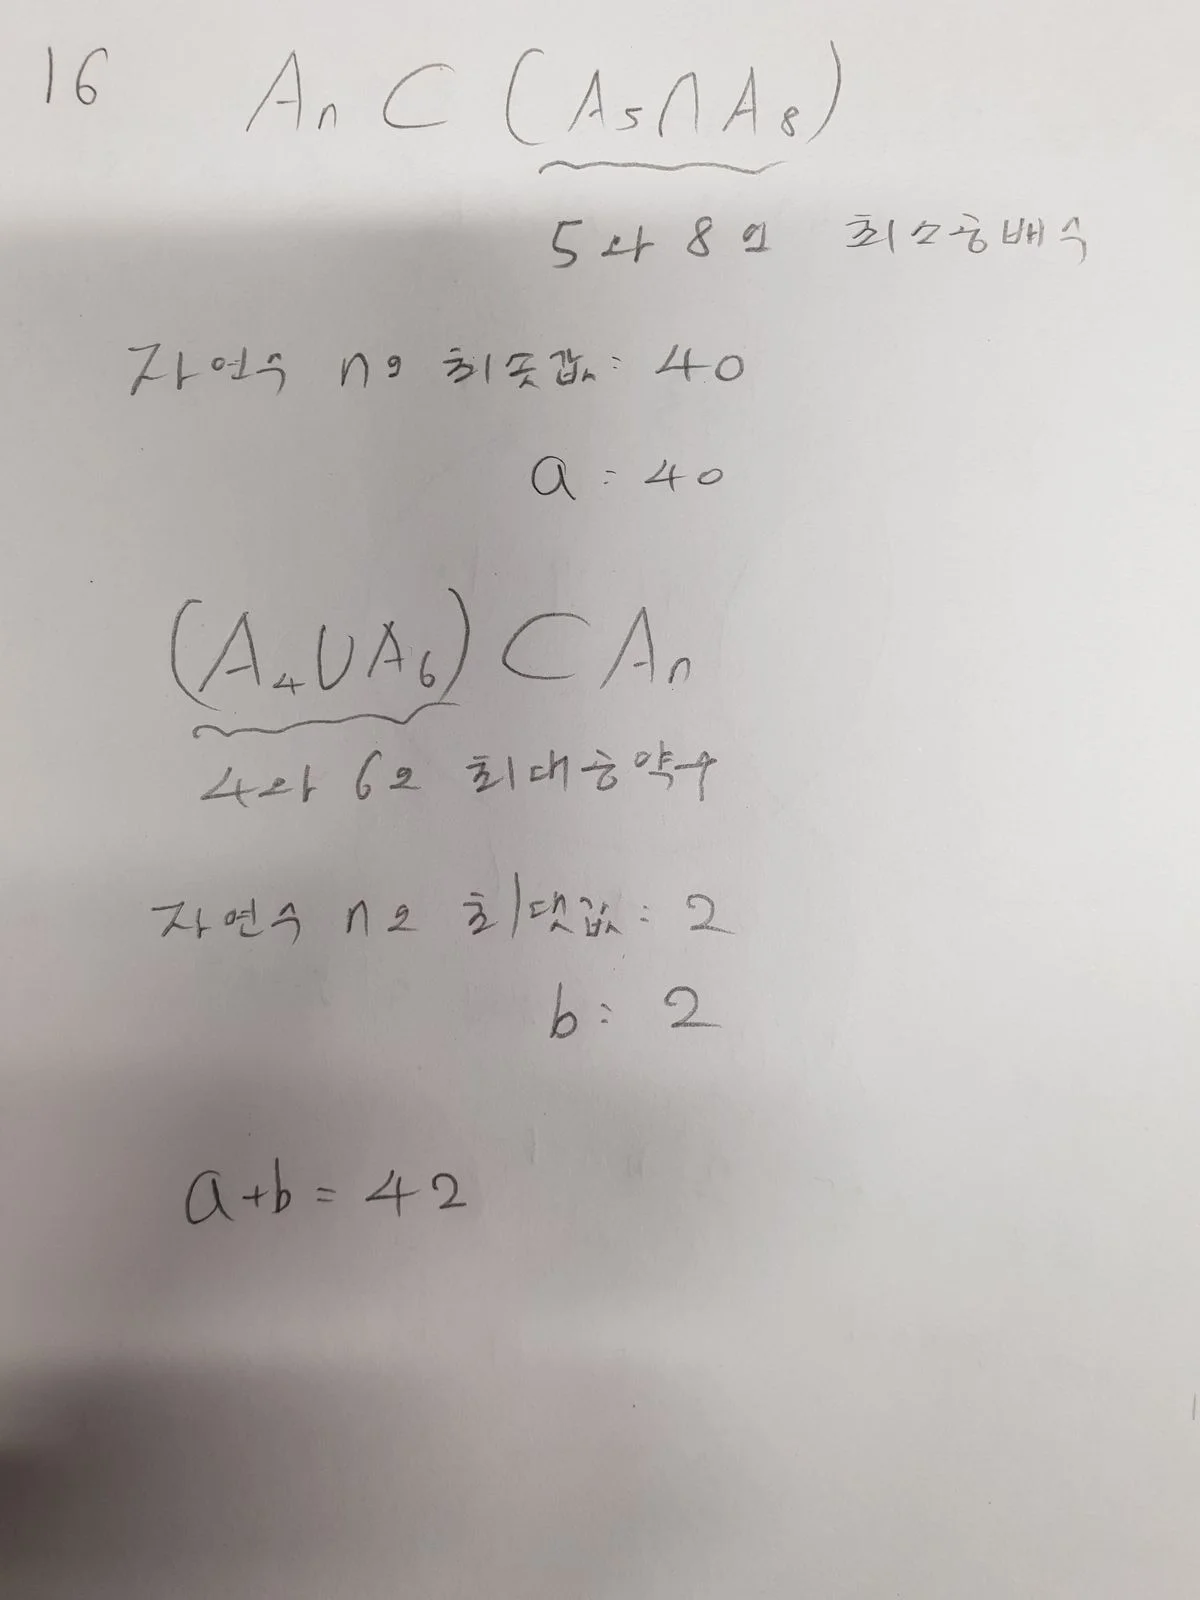 16 Aₙ ⊂ (A₅∩A₈)
5와 8의 최소공배수
자연수 n의 최솟값: 40
a = 40
(A₄∪A₆) ⊂ Aₙ
4와 6의 최대공약수
자연수 n의 최댓값: 2
b = 2
a+b = 42